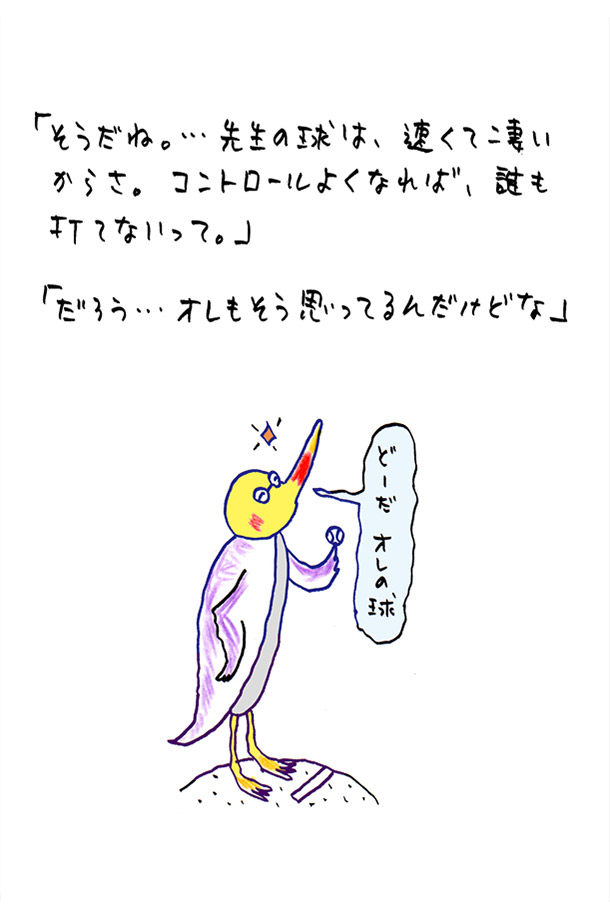 「そうだね。… 先生の球は、速くて凄い
からさ。コントロールよくなれば、誰も
打てないって。」
「だろう… オレもそう思ってるんだけどな」
どーだ オレの球